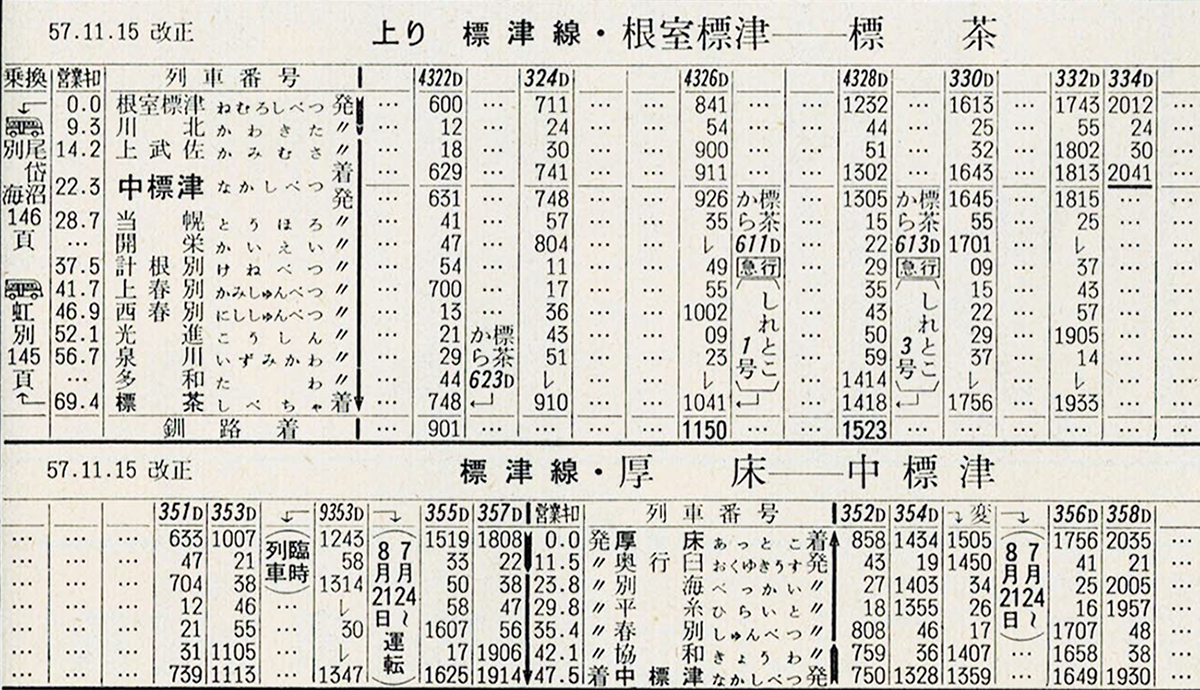 57.11.15 改正 上り 標津線・根室標津――標茶
乗換 営業キロ 列車番号 4322D … 324D 4326D 4328D 330D 332D 334D
0.0 根室標津 ねむろしべつ 発 … 600 … 711 … … 841 … … 1232 … 1613 … 1743 2012 …
9.3 川北 かわきた 〃 … 12 … 24 … … 54 … … 44 … 25 … 55 24 …
別尾 14.2 上武佐 かみむさ 〃 … 18 … 30 … … 900 … … 51 … 32 … 1802 30 …
岱 着 … 629 … 741 … … 911 … … 1302 … 1643 … 1813 2041 …
海沼 22.3 中標津 なかしべつ
発 … 631 … 748 … … 926 か標 … 1305 か標 1645 … 1815 … …
146 28.7 当幌 とうほろ 〃 … 41 … 57 … … 35 ら茶 … 15 ら茶 55 … 25 … …
頁 … 開栄 かいえい 〃 … 47 … 804 … … レ 611D … 22 613D 1701 … レ … …
37.5 計根別 けねべつ 〃 … 54 … 11 … … 49 急行 … 29 急行 09 … 37 … …
41.7 上春別 かみしゅんべつ 〃 … 700 … 17 … … 55 しれとこ1号 … 35 しれとこ3号 15 … 43 … …
虹 46.9 西春別 にししゅんべつ 〃 … 13 … 36 … … 1002 … 43 22 … 57 … …
別 52.1 光進 こうしん 〃 … 21 か標 43 … … 09 … 50 29 … 1905 … …
145 56.7 泉川 いずみかわ 〃 … 29 ら茶 51 … … 23 … 59 37 … 14 … …
頁 … 多和 たわ 〃 … 44 623D レ … … レ … 1414 レ … レ … …
69.4 標茶 しべちゃ 着 … 748 910 … … 1041 … 1418 1756 … 1933 … …
釧路着 … 901 … … … … 1150 … … 1523 … … … … … …
57.11.15 改正 標津線・厚床――中標津
351D 353D 9353D 355D 357D 営業キロ 列車番号 352D 354D 変 356D 358D
… … … 633 1007 臨時列車 1243 7月24〜8月21日運転 1519 1808 0.0 発 厚床 あっとこ 着 858 1434 1505 7月24〜8月21日 1756 2035 …
… … … 47 21 58 33 22 11.5 〃 奥行臼 おくゆきうす 発 43 19 1450 41 21 …
… … … 704 38 1314 50 38 23.8 〃 別海 べっかい 〃 27 1403 34 25 2005 …
… … … 12 46 … レ 58 47 29.8 〃 平糸 ひらいと 〃 18 1355 26 16 1957 …
… … … 21 55 … 30 1607 56 35.4 〃 春別 しゅんべつ 〃 808 46 17 1707 48 …
… … … 31 1105 … レ 17 1906 42.1 〃 協和 きょうわ 〃 759 36 1407 … 1658 38 …
… … … 739 1113 … 1347 1625 1914 47.5 着 中標津 なかしべつ 発 750 1328 1359 … 1649 1930 …